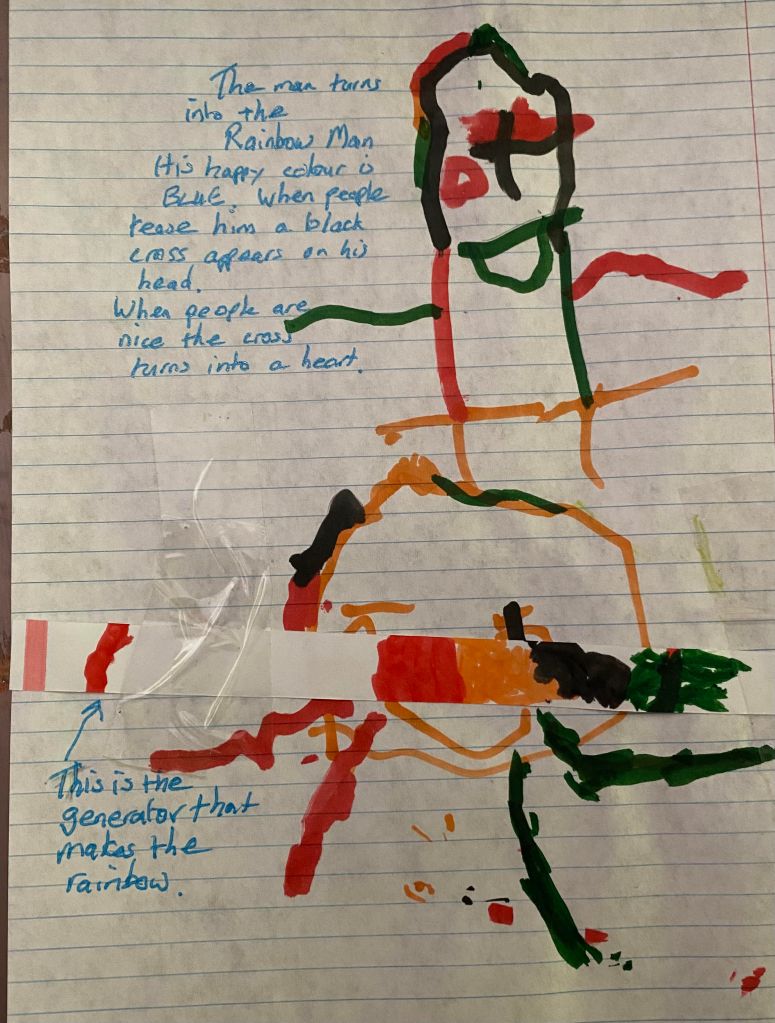 The man turns
into the
Rainbow Man
His happy colour is
BLUE. When people
tease him a black
cross appears on his
head.
When people are
nice the cross
turns into a heart.
This is the
generator that
makes the
rainbow.